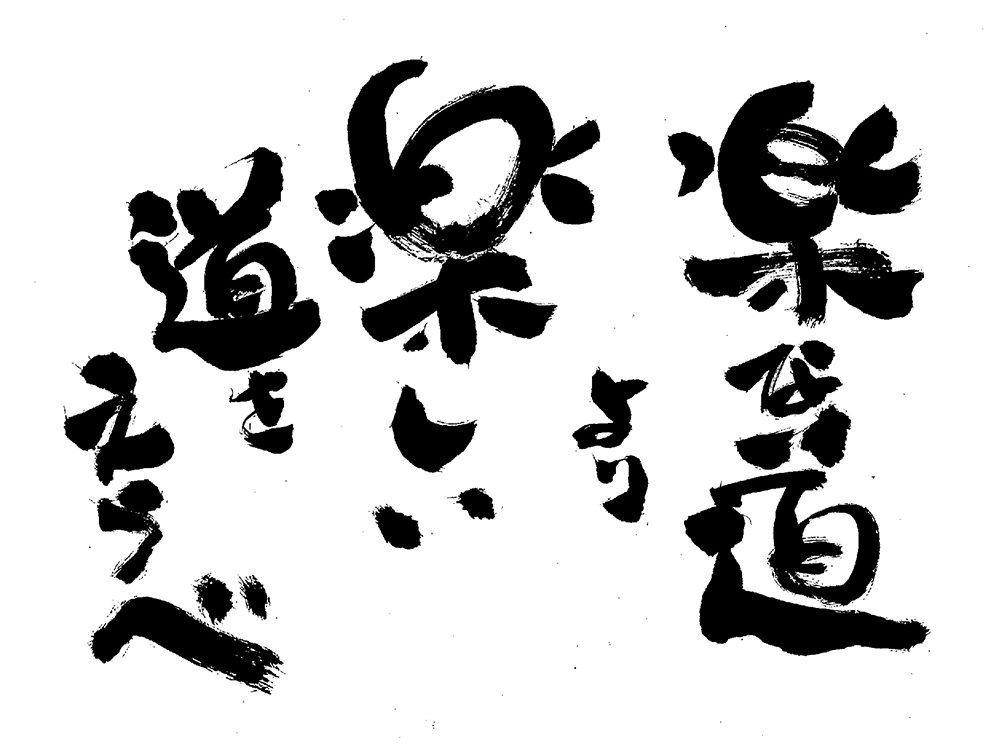 楽な道
より
楽しい
道を
えらべ